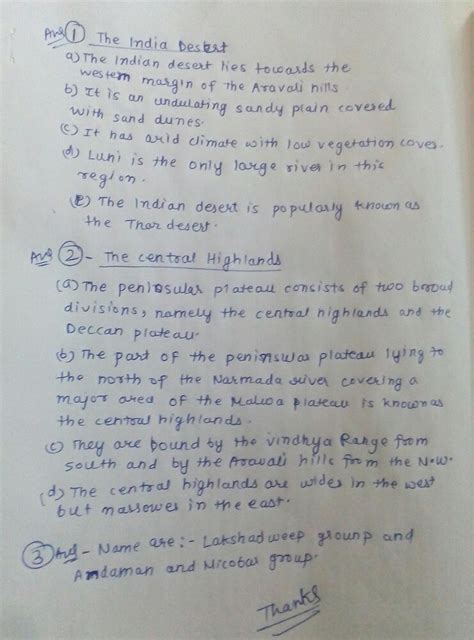 Ans ① The India Desert
a) The Indian desert lies towards the
western margin of the Aravali hills.
b) It is an undulating sandy plain covered
with sand dunes.
(c) It has arid climate with low vegetation cover.
(d) Luni is the only large river in this
region.
(e) The Indian desert is popularly known as
the Thar desert.
Ans ② - The central Highlands
(a) The peninsular plateau consists of two broad
divisions, namely the central highlands and the
Deccan plateau.
(b) The part of the peninsular plateau lying to
the north of the Narmada river covering a
major area of the Malwa plateau is known as
the central highlands.
(c) They are bound by the vindhya Range from
south and by the Aravali hills from the N.W.
(d) The central highlands are wider in the west
but narrower in the east.
③ Ans - Name are :- Lakshadweep grounp and
Andaman and Nicobar group.
Thanks